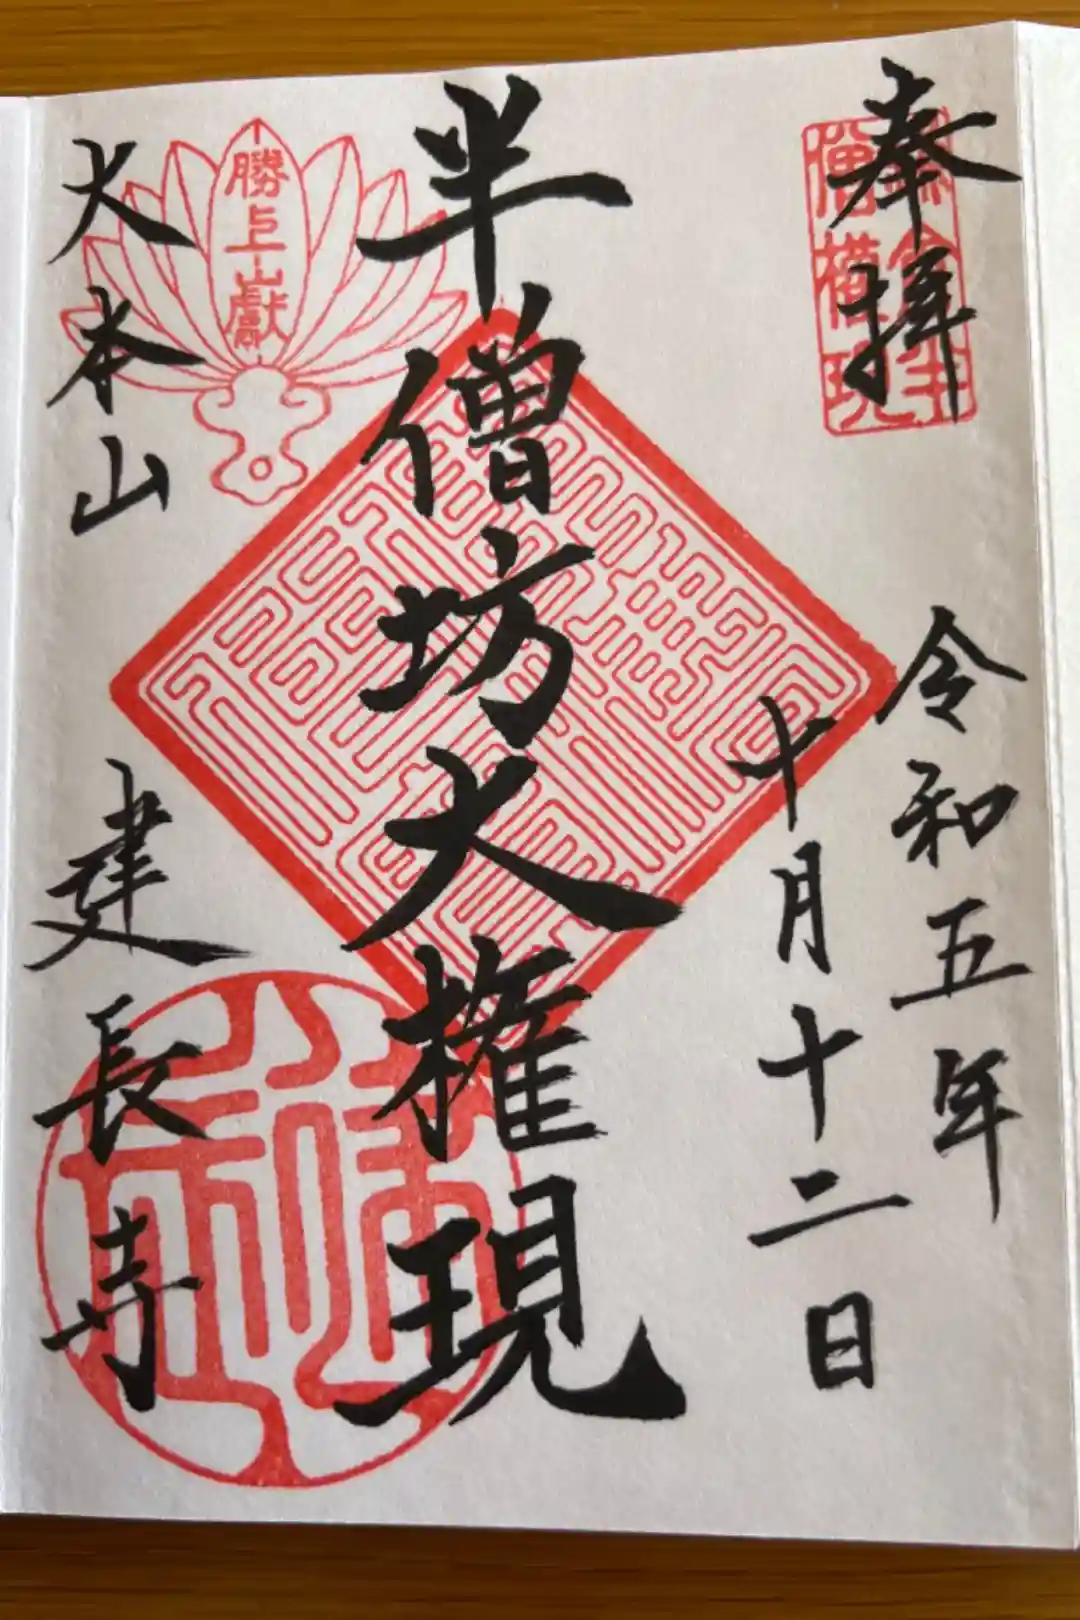 奉拝
令和五年
十月十二日
半僧坊大権現
勝上山献
大本山
建長寺